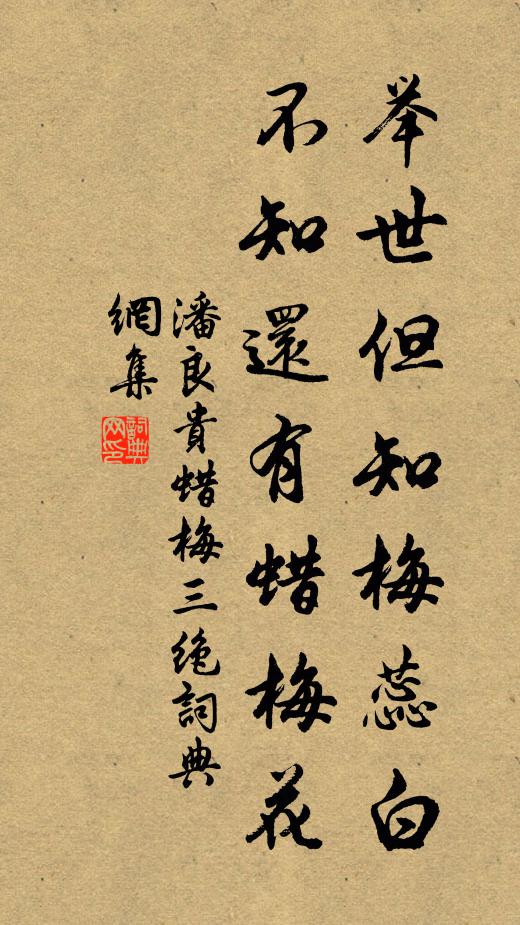 举世但知梅蕊白
不知還有蜡梅花
潘良貴蜡梅三绝詞典
網集
詞典
网印